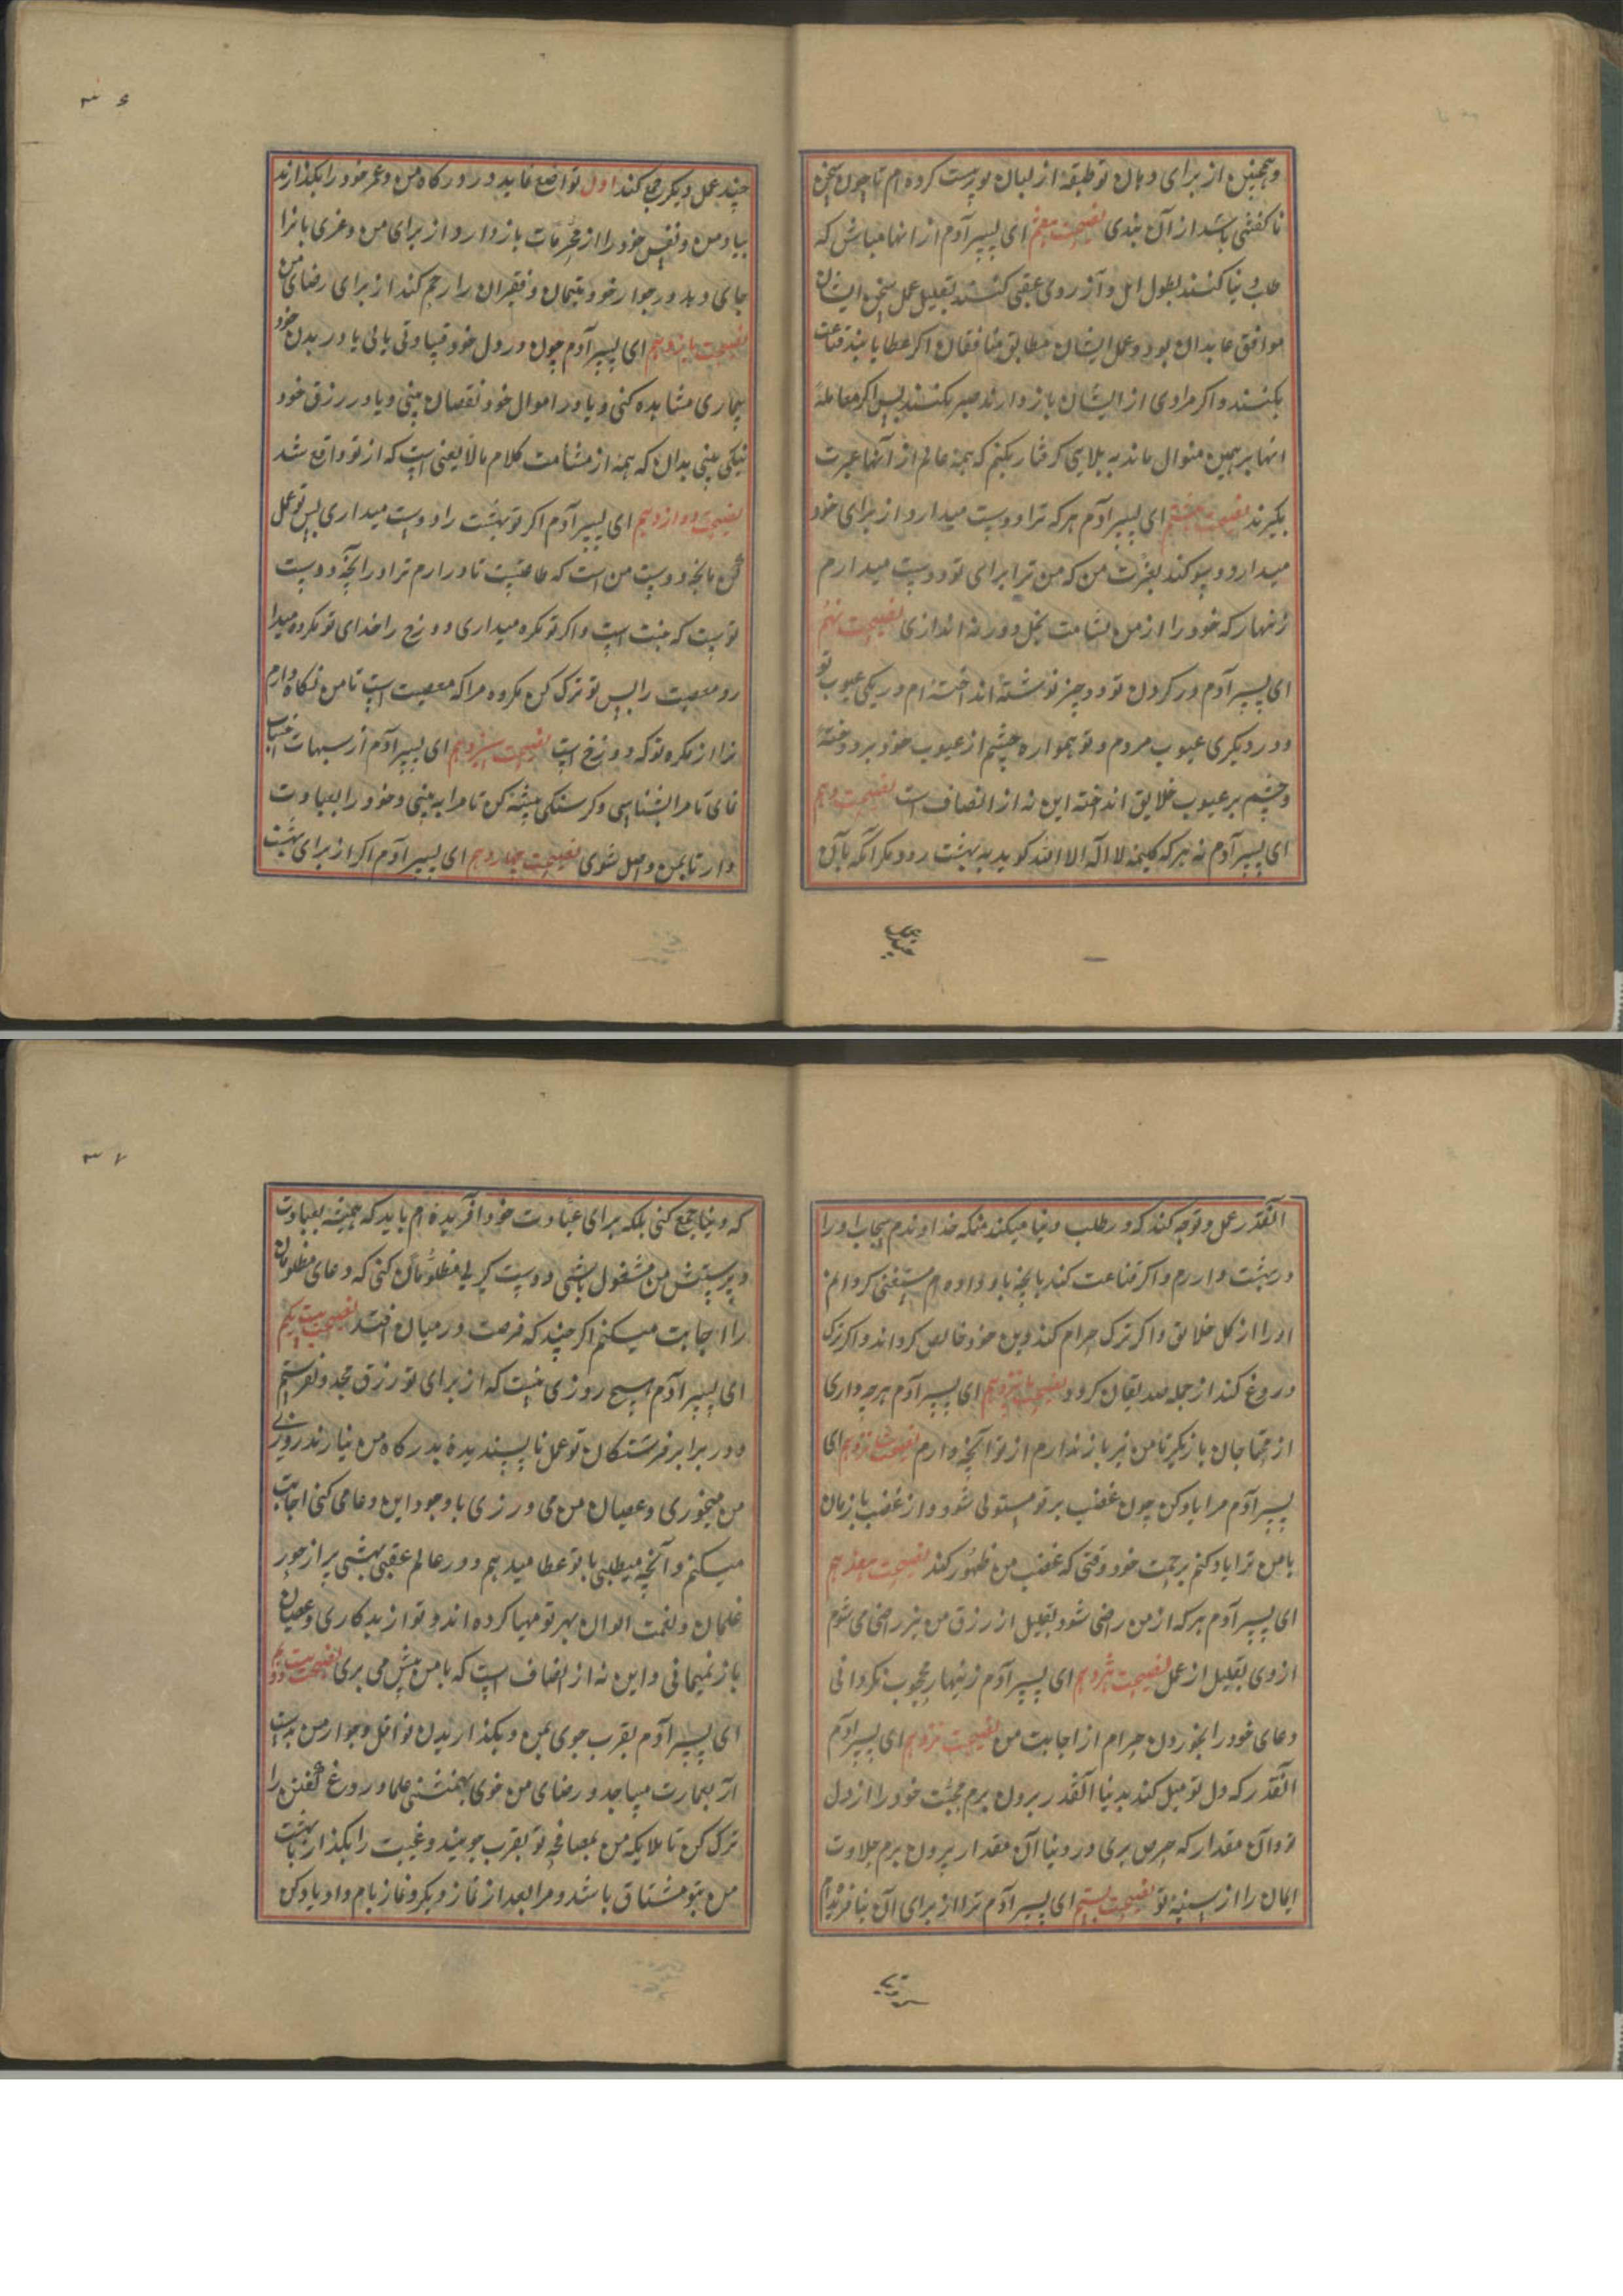 و همچنین از برای دهان تو طبقه از لبان تو پرست کرده ام تا چون سخن
ناگفتنی باشد از آن ببندی نصیحت هفتم ای پسر آدم از انها مباش که
طلب دنیا کنند بطول امل و آرزوی عقبی کنند بقلیل عمل سخن ایشان
موافق عابدان بود و عمل ایشان مطابق منافقان اگر عطا یابند قناعت
نکنند و اگر مرادی از ایشان باز دارند صبر نکنند پس اگر معامله
انها بر همین منوال ماند به بلایی گرفتار بکنم که همه عالم از آنها عبرت
بگیرند نصیحت هشتم ای پسر آدم هر که ترا دوست میدارد از برای خود
میدارد و بعزت من که من ترا برای تو دوست میدارم
زنهار که خود را از من بشامت بخل دور نه اندازی نصیحت نهم
ای پسر آدم در گردن تو دو چیز نوشته انداخته ام در یکی عیوب تو
و در دیگری عیوب مردم و تو همواره چشم از عیوب خود بر دوخته
و چشم بر عیوب خلایق انداخته این نه از انصاف است نصیحت دهم
ای پسر آدم نه هر که کلیمه لا اله الا الله گوید به بهشت رود مگر آنکه با آن
چند عمل دیگر جمع کند اول تواضع نماید در درگاه من و عمر خود را بگذارند
بیاد من و نفس خود را از محرمات باز دارد از برای من و غریبانرا
جای دهد در جوار خود و یتیمان و فقیران را رحم کند از برای رضای من
نصیحت یازدهم ای پسر آدم چون در دل خود قساوتی یابی یا در بدن خود
بیماری مشاهده کنی و یا در اموال خود نقصان بینی و یا در رزق خود
تنگی بینی بدان که همه از مشامت کلام مالایعنی است که از تو واقع شد
نصیحت دوازدهم ای پسر آدم اگر تو بهشت را دوست میداری پس تو عمل
کن بآنچه دوست من است که طاعتست تا در آرم ترا در آنچه دوست
توست که جنت است و اگر تو مکره میداری دوزخ را خدای تو مکروه میدا
رد معصیت را پس تو ترک کن مکروه مرا که معصیت است تا من نگاه دارم
ترا از مکره تو که دوزخ است نصیحت سیزدهم ای پسر آدم از سبهات اجتناب
نمای تا مرا بشناسی و گرسنگی پیشه کن تا مرا به بینی و خود را بعبادت
دار تا بمن واصل شوی نصیحت چهاردهم ای پسر آدم اگر از برای بهشت
۳۶
آنقدر عمل و توجه کند که در طلب دنیا میکند منکه خداوندم بیحساب او را
در بهشت در آرم و اگر قناعت کند بآنچه باو داده ام مستغنی گردانم
او را از کل خلایق و اگر ترک حرام کند دین خود خالص گرداند و اگر ترک
دروغ کند از جمله صدیقان گردد نصیحت پانزدهم ای پسر آدم هر چه داری
از محتاجان باز نگیر تا من نیز باز ندارم از تو آنچه دارم نصیحت شانزدهم ای
پسر آدم مرا یاد کن چون غضب بر تو مستولی شود و از غضب باز مان
تا من ترا یاد کنم برحمت خود وقتی که غضب من ظهور کند نصیحت هفدهم
ای پسر آدم هر که از من راضی شود بقلیل از رزق من نیز راضی می شوم
از وی بقلیل از عمل نصیحت هژدهم ای پسر آدم زینهار محجوب نگردانی
دعای خود را بخوردن حرام از اجابت من نصیحت نوزدهم ای پسر آدم
آنقدر که دل تو میل کند بدنیا آنقدر بیرون برم محبت خود را از دل
تو و آن مقدار که حرص بری در دنیا آن مقدار بیرون برم حلاوت
ایمان را از سینه تو نصیحت بیستم ای پسر آدم ترا از برای آن نیافریدم
که دنیا جمع کنی بلکه برای عبادت خود آفریده ام باید که همیشه بعبادت
و پرستش من مشغول باشی و دست گیری مظلومان کنی که دعای مظلومان
را اجابت میکنم اگر چند که فرصت در میان افتد نصیحت بیست یکم
ای پسر آدم هیچ روزی نیست که از برای تو رزق مجدد نفرستم
و در برابر فرشتگان تو عمل ناپسندیده بدرگاه من نیارند روزی
من میخوری و عصیان من می ورزی با وجود این دعا می کنی اجابت
میکنم و آنچه میطلبی با تو عطا میدهم و در عالم عقبی بهشتی پر از حور
غلمان و نعمت الوان بهر تو مهیا کرده اند و تو از بدکاری و عصیان
باز نمیمانی و این نه از انصاف است که با من پیش می بری نصیحت بیست دوم
ای پسر آدم بقرب جوی بمن و بگذاریدن نوافل و جوار من بدست
آر بعمارت مساجد و رضای من خوی بهمنشینی علما و دروغ گفتن را
ترک کن تا ملایکه من بمصافحه تو بقرب جویند و غیبت را بگذار تا بهشت
من بتو مشتاق باشد و مرا بعد از نماز دیگر و نماز بامداد یاد کن
۳۷